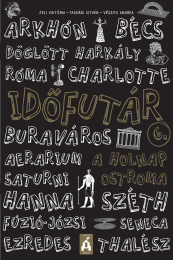 JELI VIKTÓRIA · TASNÁDI ISTVÁN · VÉSZITS ANDREA
ARKHÓN BÉCS
DÖGLÖTT HARKÁLY
RÓMA CHARLOTTE
IDŐFUTÁR
BURAVÁROS 6.
AERARIUM A HOLNAP
SATURNI OSTROMA
HANNA SZÉTH
FÚZIÓ-JÓZSI SENECA
EZREDES THALÉSZ